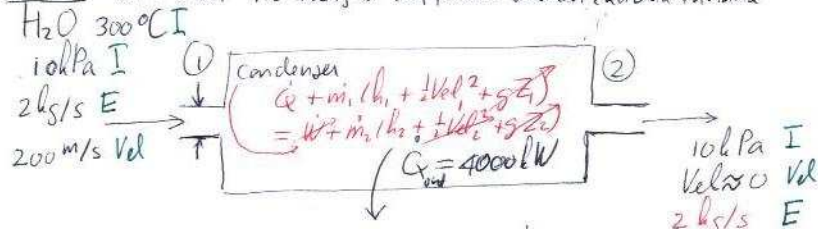 H₂O 300°C I
10kPa I ①
2 kg/s E
200 m/s Vel
Condenser
Q̇ + ṁ₁ (h₁ + ½Vel₁² + gZ₁)
= Ẇ + ṁ₂ (h₂ + ½Vel₂² + gZ₂)
Q̇out = 4000 kW
②
10 kPa I
Vel ≈ 0 Vel
2 kg/s E